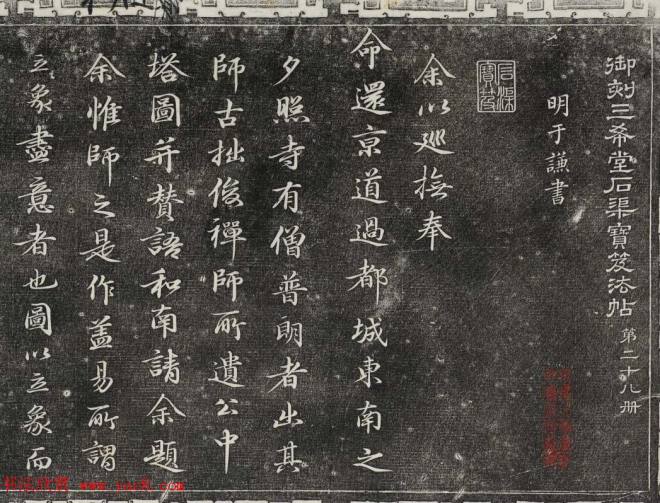 御刻三希堂石渠寶笈法帖 第二十八冊
明于謙書
石渠寶笈
余以廵撫奉
命還京道過都城東南之
夕照寺有僧普朗者出其
師古拙俊禪師所遺公中
塔圖并賛語和南請余題
余惟師之是作盖易所謂
立象盡意者也圖以立象而